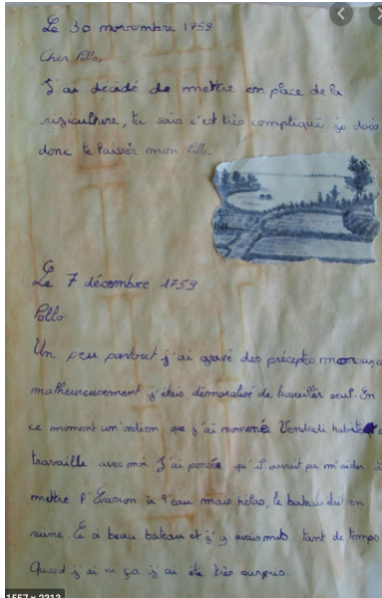 Le 30 novembre 1759
Cher Pollo,
J'ai décidé de mettre en place de la
riziculture, tu sais c'est très compliqué je dois
donc te laisser mon Pollo.
Le 7 décembre 1759
Pollo
Un peu partout j'ai gravé des préceptes,
malheureusement j'étais démoralisé de travailler seul. En
ce moment un indien que j'ai nommé Vendredi habite
travaille avec moi. J'ai pensée qu'il aurait pu m'aider à
mettre l'Evasion à l'eau mais hélas, le bateau est en
ruine. Le beau bateau et j'y avais mis tant de temps
Quand j'ai vu ça j'ai été très surpris.
1557 x 2313